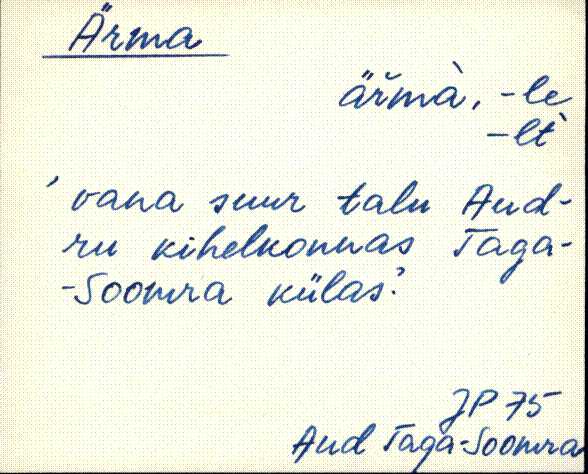 Ärma
äřmà, -le
-lt`
'vana suur talu Aud-
ru kihelkonnas Taga-
-Soomra külas'
JP 75
Aud Taga-Soomra